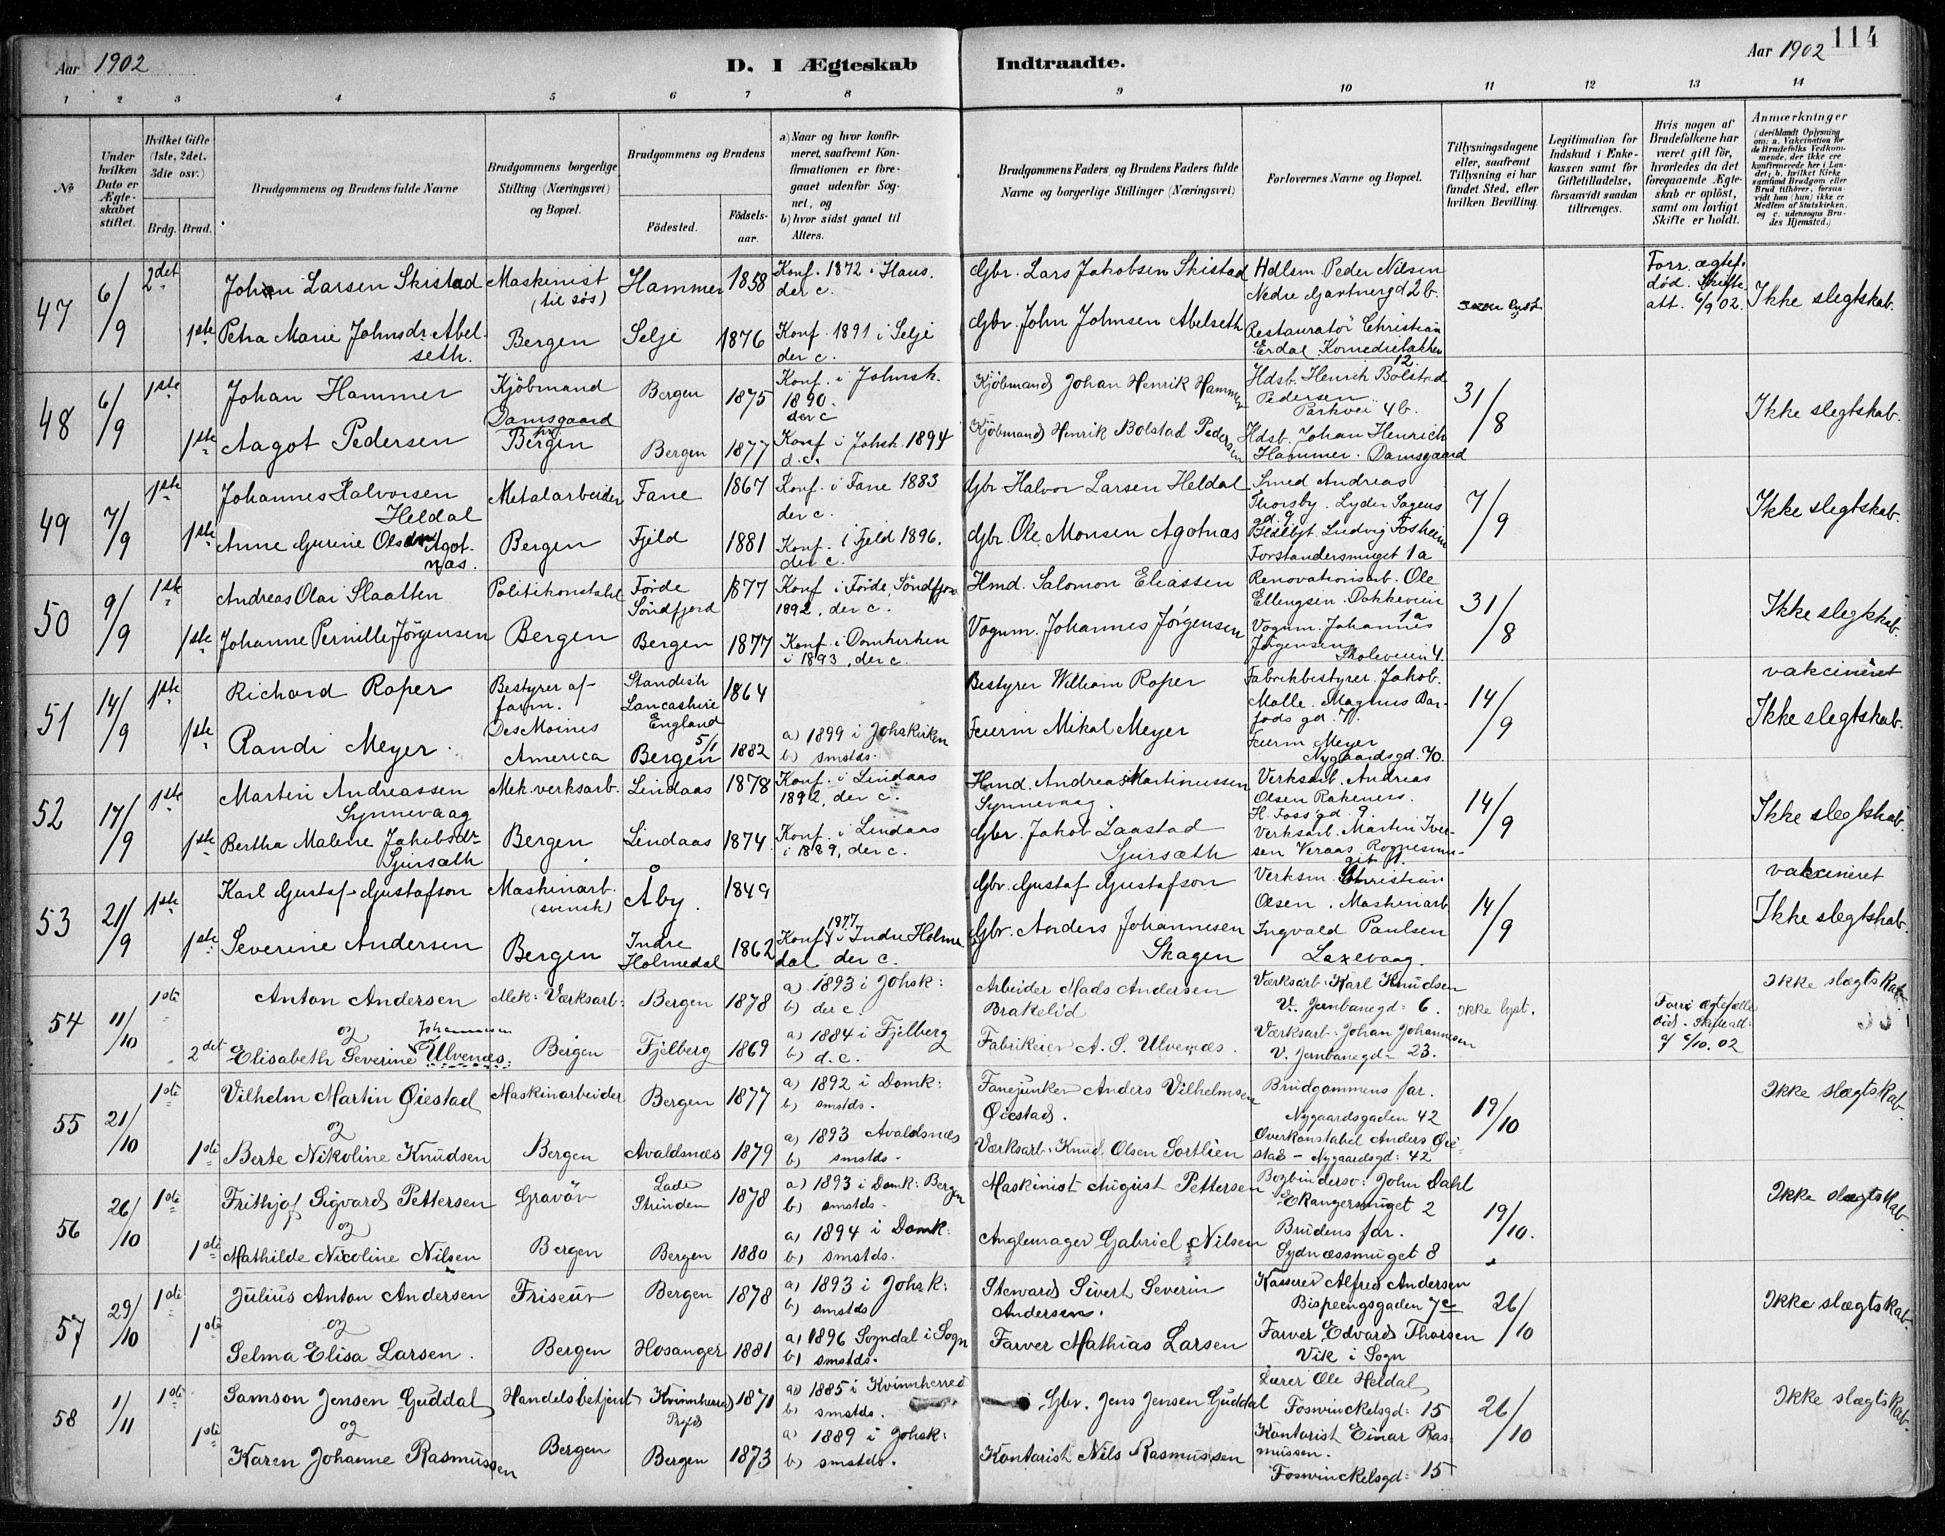 Aar 1902
D. I Ægteskab Indtraadte.
Aar 1902
114
1 2 3 4 5 6 7 8 9 10 11 12 13 14
No
Under hvilken Dato er Ægteskabet stiftet.
Hvilket Gifte (1ste, 2det, 3die osv.)
Brdg. Brud.
Brudgommens og Brudens fulde Navne
Brudgommens borgerlige Stilling (Næringsvei) og Bopæl.
Brudgommens og Brudens
Födested.
Födselsaar.
a) Naar og hvor konfirmeret, saafremt Konfirmationen er foregaaet udenfor Sognet, og
b) hvor sidst gaaet til Alters.
Brudgommens Faders og Brudens Faders fulde Navne og borgerlige Stillinger (Næringsvei)
Forlovernes Navne og Bopæl.
Tillysningsdagene eller, saafremt Tillysning ei har fundet Sted, efter hvilken Bevilling.
Legitimation for Indskud i Enkekassen samt for Giftetilladelse, forsaavidt saadan tiltrænges.
Hvis nogen af Brudefolkene har været gift för, hvorledes da det foregaaende Ægteskab er oplöst, samt om lovligt Skifte er holdt.
Anmærkninger
47 6/9 2det
Johan Larsen Skistad Maskinist (til søs) Hammer 1858 Konf. 1872 i Haus. der c.
Gbr. Lars Jakobsen Skistad Hdlsm Peder Nilsen Nedre Gartnergd 2 b.
Forr. ægtef. død. Skifte att. 6/9 02. Ikke slegtskab.
1ste Petra Marie Johnsdr Abelseth. Bergen Selje 1876 Konf. 1891 i Selje der c.
Gbr. John Johnsen Abelseth Restauratør Christian Erdal. Komediebakken 12
48 6/9 1ste
Johan Hammer Kjöbmand Damsgaard Bergen 1875 Konf. i Johsk. 1890. der c
Kjöbmand Johan Henrik Hammer Hdsb. Henrich Bolstad Pedersen Parkvei 4 b. 31/8 Ikke slegtskab.
1ste Aagot Pedersen Bergen Bergen 1877 Konf i Johsk. 1894 d.c.
Kjöbmand Henrik Bolstad Pedersen Hdsb. Johan Henrich Hammer. Damsgaard
49 7/9 1ste
Johannes Halvorsen Heldal Metalarbeider Fane 1867 Konf. i Fane 1883 der c.
Gbr Halvor Larsen Heldal Smed Andreas Thorsby. Lyder Sagens gd. 9 7/9 Ikke slegtskab.
1ste Anne Gurine Olsdtr Agotnæs. Bergen Fjeld 1881 Konf. i Fjeld 1896. der c.
Gbr. Ole Monsen Agotnæs Ludvig Fosheim Forstandersmuget 1a
50 9/9 1ste
Andreas Olai Slaatten Politikonstabel Førde Söndfjord 1877 Konf i Førde, Söndfjor 1892, der c.
Hmd. Salomon Eliassen Renovationsarb. Ole Ellingsen. Dokkeveien 1a 31/8 Ikke slegtskab.
1ste Johanne Pernille Jørgensen Bergen Bergen 1877 Konf. i Domkirken i 1893, der c.
Vognm. Johannes Jørgensen Vognm. Johannes Jørgensen Skoleveien 4.
51 14/9 1ste
Richard Roper Bestyrer af farm. Des Moines America Standish Lancashire England 1864
Bestyrer William Roper Fabrikbestyrer. Jakob. Molle. Magnus Barfods gd. 14/9 vakcineret Ikke slegtskab.
1ste Randi Meyer. Bergen 5/1 1882 a) 1899 i Johskirken b) smstds.
Feierm Mikal Meyer Feierm Meyer Nygaardsgd. 70.
52 17/9 1ste
Martin Andreassen Synnevaag Mek. verksarb. Lindaas 1878 Konf. i Lindaas 1892, der c.
Hmd. Andreas Martinussen Synnevaag. Verksarb. Andreas Olsen Rakeness. H. Foss gd. 9. 14/9 Ikke slegtskab.
1ste Bertha Malene Jakobsdr Sjursæth Bergen Lindaas 1874 Konf. i Lindaas i 1889, der c.
Gbr. Jakob Laastad Sjursæth Verksarb. Martin Iversen Veraas
53 21/9 1ste
Karl Gustaf Gustafson Maskinarb. (svensk) Åby. 1849
Gbr. Gustaf Gustafson Verksm. Christian Olsen. Maskinarb 14/9 vakcineret Ikke slegtskab.
1ste Severine Andersen Bergen Indre Holmedal 1862 Konf. 1877 i Indre Holmedal der c.
Gbr. Anders Johannesen Skagen Ingvald Paulsen Laxevaag.
54 11/10 1ste
Anton Andersen Mek: Værksarb: Bergen 1878 a) 1893 i Johsk: b) der c.
Arbeider Mads Andersen Brakelid Værksarb. Karl Knudsen V. Jernbanegd: 6. Ikke lyst. Ikke slægtskab.
og
2det Elisabeth Severine Johannesen Ulvenæs. Bergen Fjelberg 1869 a) 1884 i Fjelberg b) d.c.
Fabrikeier A. S. Ulvenæs. Værksarb. Johan Johannesen V. Jernbanegd: 23. Forri ægtefælle död. Skifteatt: 02
55 21/10 1ste
Vilhelm Martin Öiestad Maskinarbeider Bergen 1877 a) 1892 i Domk: b) smstds.
Fanejunker Anders Vilhelmsen Öiestad. Brudgommens far. Nygaardsgaden 42 19/10 Ikke slægtskab.
og
1ste Berte Nikoline Knudsen Bergen Avaldsnæs 1879 a) 1893 Avaldsnæs b) smstds.
Værksarb. Knud Olsen Sortlien Overkonstabel Anders Öiestad - Nygaardsgd: 42
56 26/10 1ste
Frithjof Sigvard Pettersen Gravör Lade Strinden 1878 a) 1893 i Domk: Bergen b) smstds.
Maskinist August Pettersen Bogbindersv: John Dahl Ekangersmuget 2 19/10. Ikke slægtskab.
og
1ste Mathilde Nicoline Nilsen Bergen Bergen 1880 a) 1894 i Domk: b) smstds.
Anglemager Gabriel Nilsen Brudens far. Sydnæssmuget 8
57 29/10 1ste
Julius Anton Andersen Friseur Bergen 1878 a) 1893 i Johsk: b) smstds
Steward Sivert Severin Andersen. Kasserer Alfred Andersen Bispeengsgaden 7c 26/10 Ikke slægtskab.
og
1ste Selma Elisa Larsen. Bergen Hosanger 1881 a) 1896 Sogndal i Sogn b) smstds.
Farver Mathias Larsen Farver Edvard Thorsen Vik i Sogn
58 1/11 1ste
Samson Jensen Guddal Handelsbetjent Kvinnherred Prgjd 1871 a) 1885 i Kvinnherred b) smstds.
Gbr. Jens Jensen Guddal Lærer Ole Heldal, Foswinckelsgd: 15 26/10 Ikke slægtskab.
og
1ste Karen Johanne Rasmussen Bergen Bergen 1873 a) 1889 i Johsk: b) smstds.
Kontorist Nils Rasmussen Kontorist Einar Rasmussen. Foswinckelsgd: 15